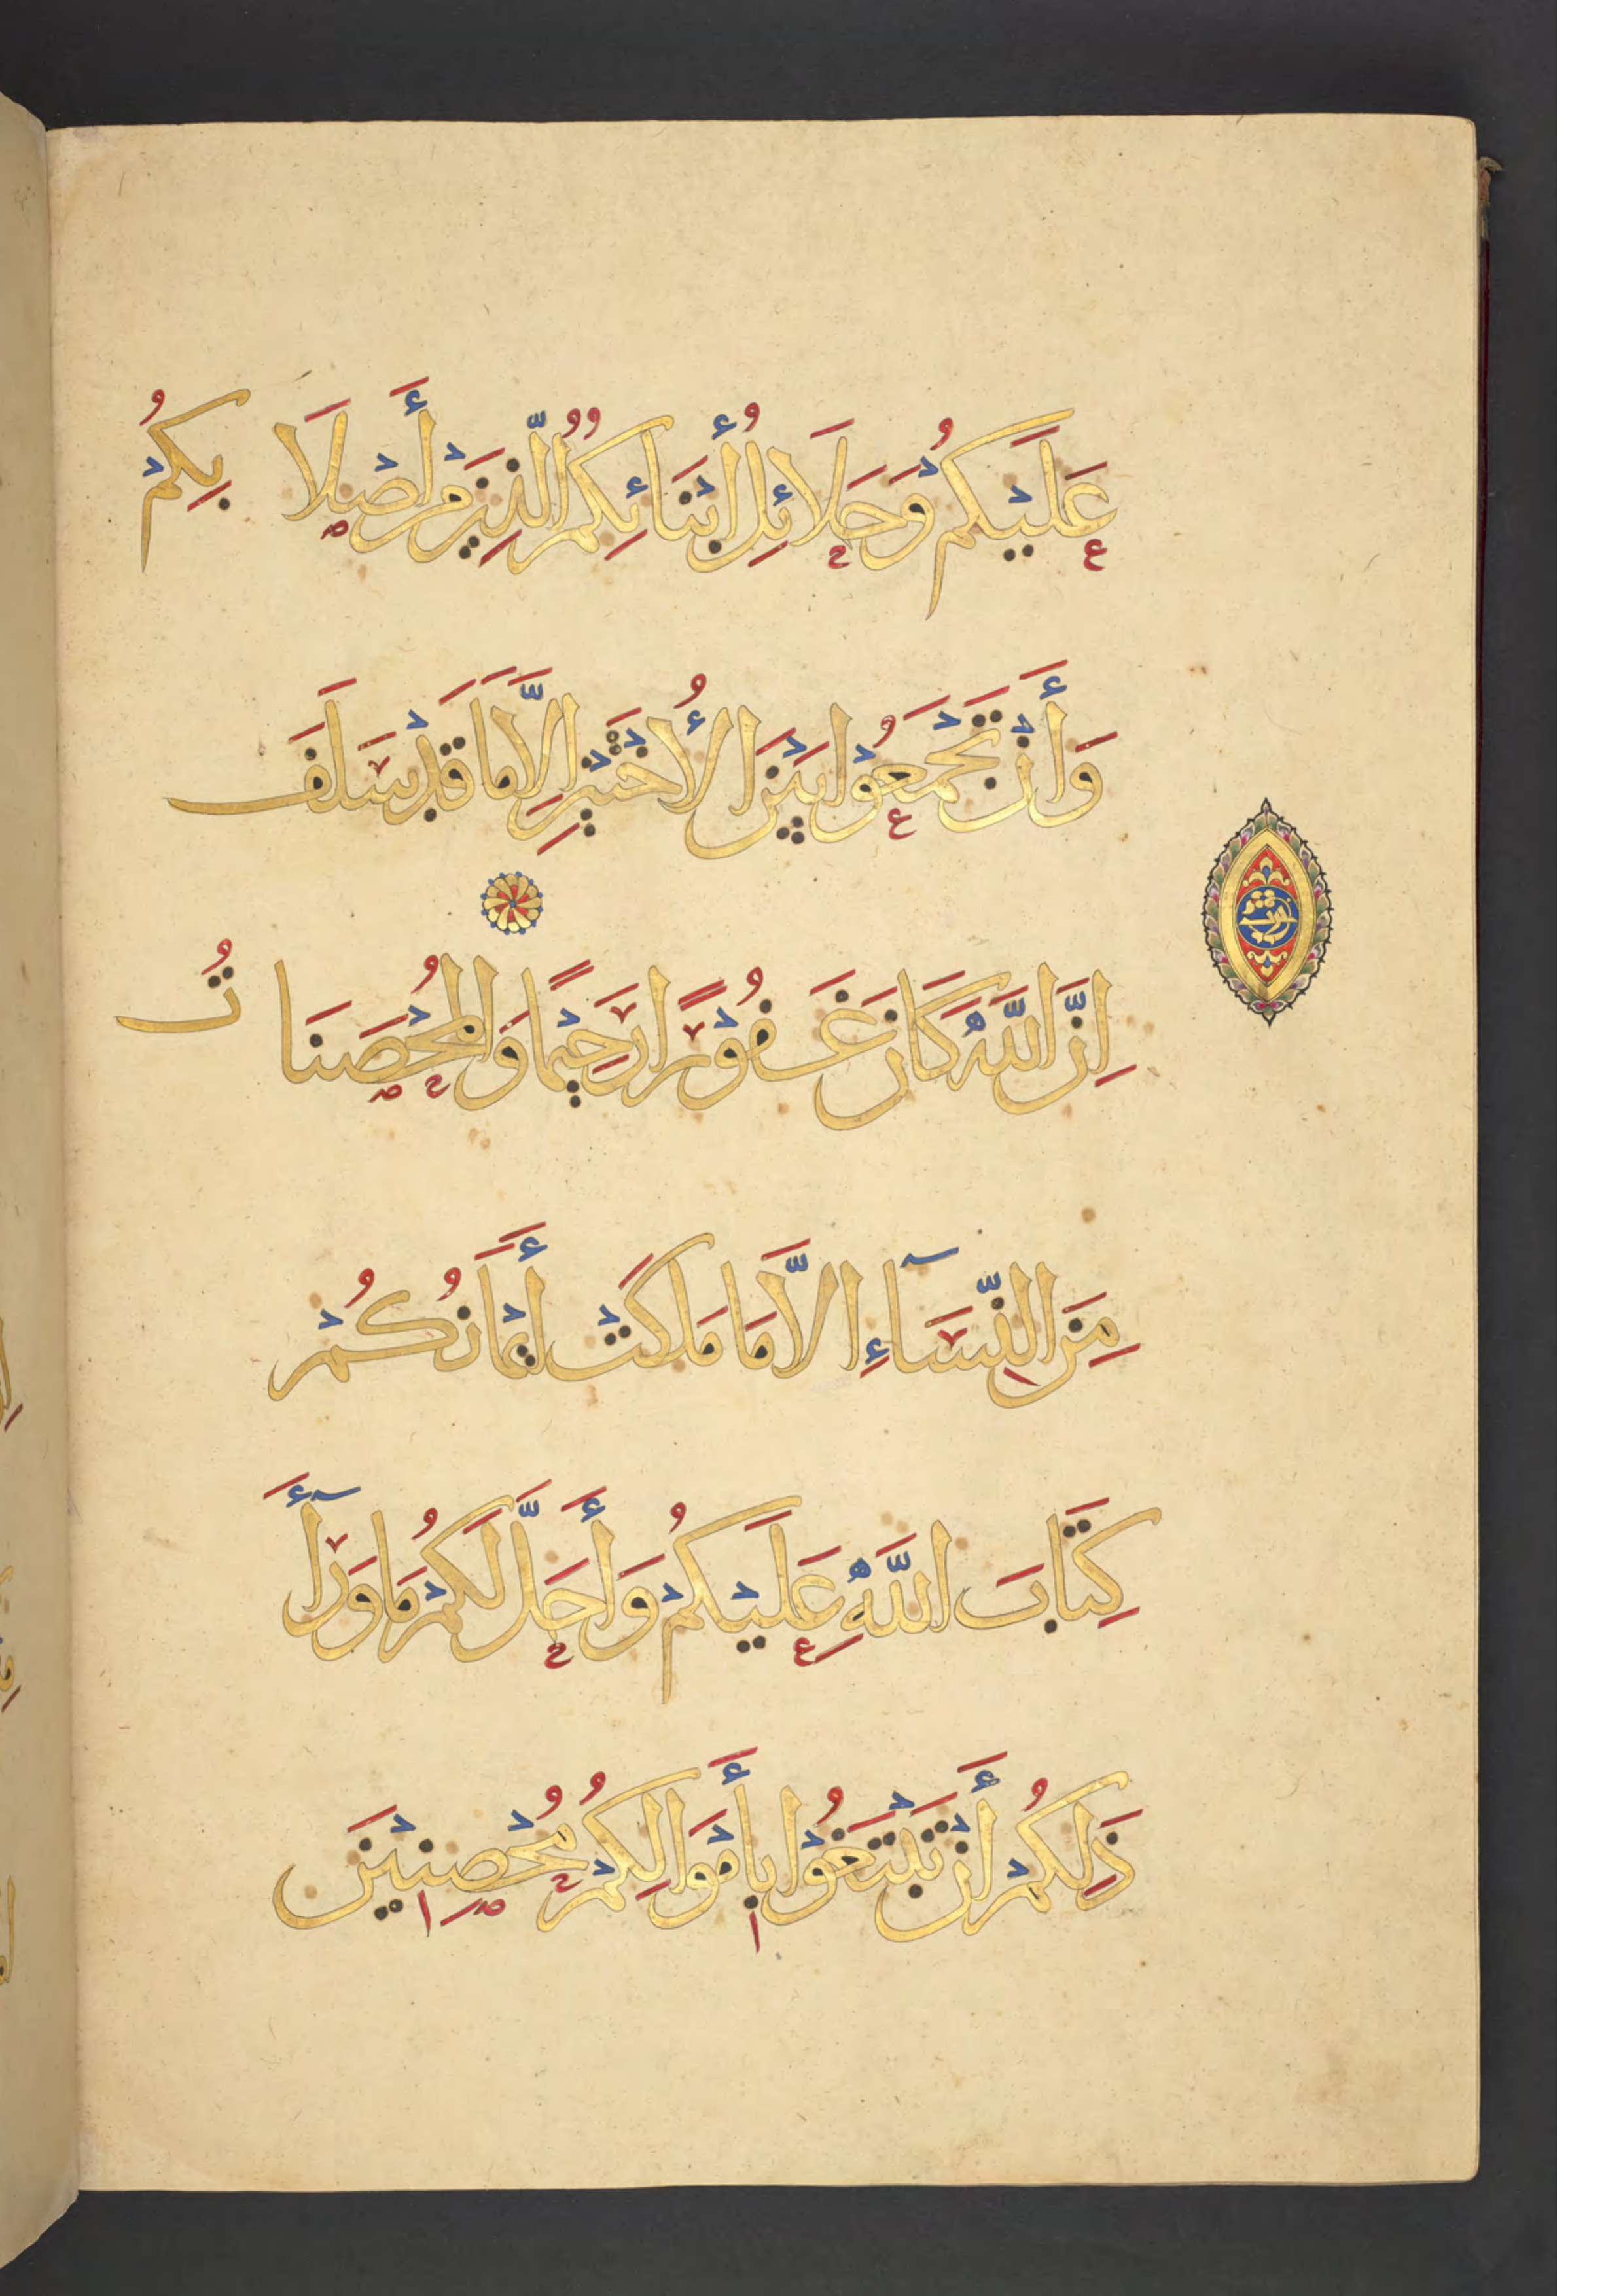 عَلَيْكُمْ وَحَلَائِلُ أَبْنَائِكُمُ الَّذِينَ مِنْ أَصْلَابِكُمْ
وَأَنْ تَجْمَعُوْا بَيْنَ الْأُخْتَيْنِ اِلَّا مَا قَدْ سَلَفَ
اِنَّ اللَّهَ كَانَ غَفُوْرًا رَحِيْمًا وَالْمُحْصَنَاتُ
مِنَ النِّسَآءِ الَّا مَا مَلَكَتْ أَيْمَانُكُمْ
كِتَابَ اللَّهِ عَلَيْكُمْ وَأَحَلَّ لَكُمْ مَا وَرَآأَ
ذَلِكُمْ أَنْ تَبْتَغُوْا بِأَمْوَالِكُمْ مُحْصِنِيْنَ